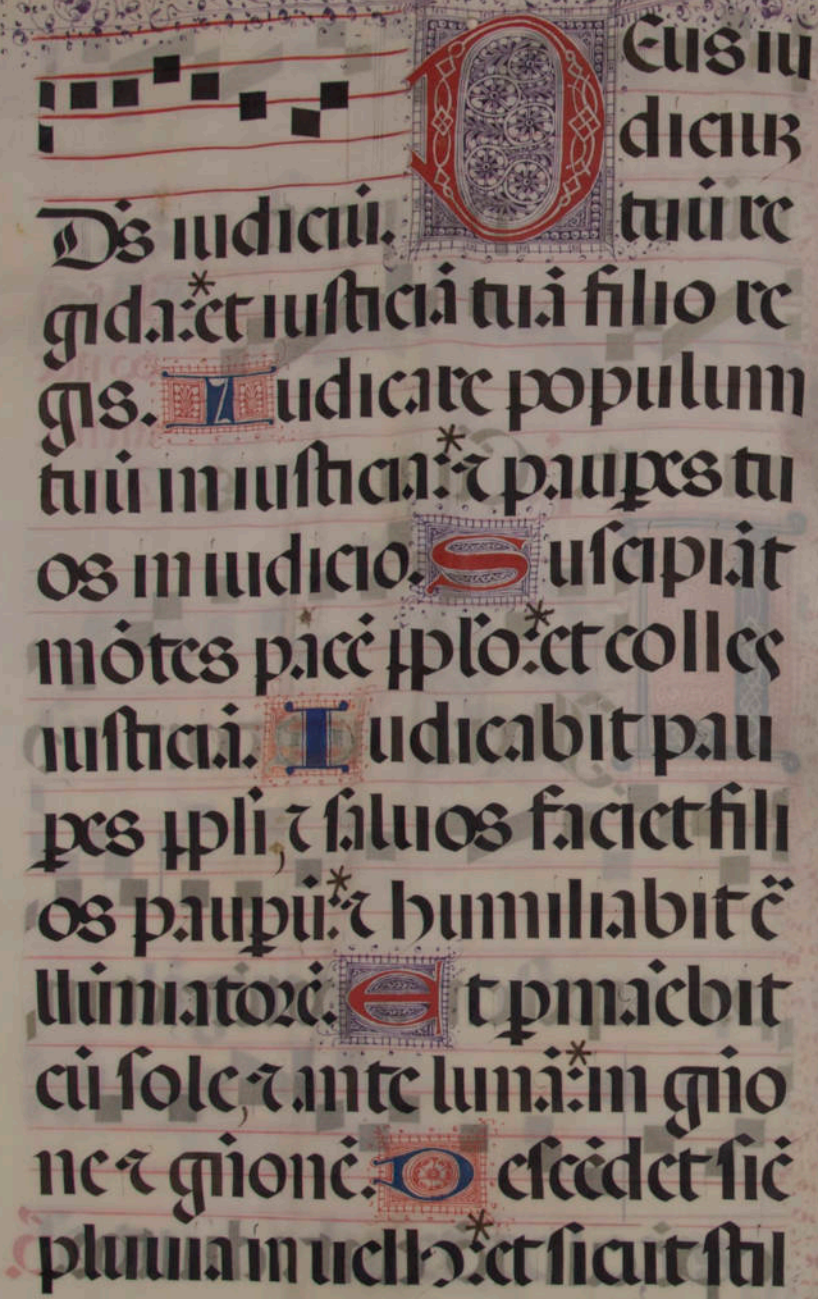 Deus iu
diciuz
Ds iudiciū. tuū re
gi da: * et iusticiā tuā filio re
gis. Iudicare populum
tuū in iusticia: * ⁊ pauꝑes tu
os in iudicio. Suscipiāt
mōtes pacē pplo: * et colles
iusticiā. Iudicabit pau
ꝑes ppli, ⁊ saluos faciet fili
os pauꝑū: * ⁊ humiliabit c̄
llūniatorē. Et ꝑmāebit
cū sole, ⁊ ante lunā: * in gn̄io
ne ⁊ gn̄ionē. Descēdet sic̄
pluuia in uell9: * et sicut stil